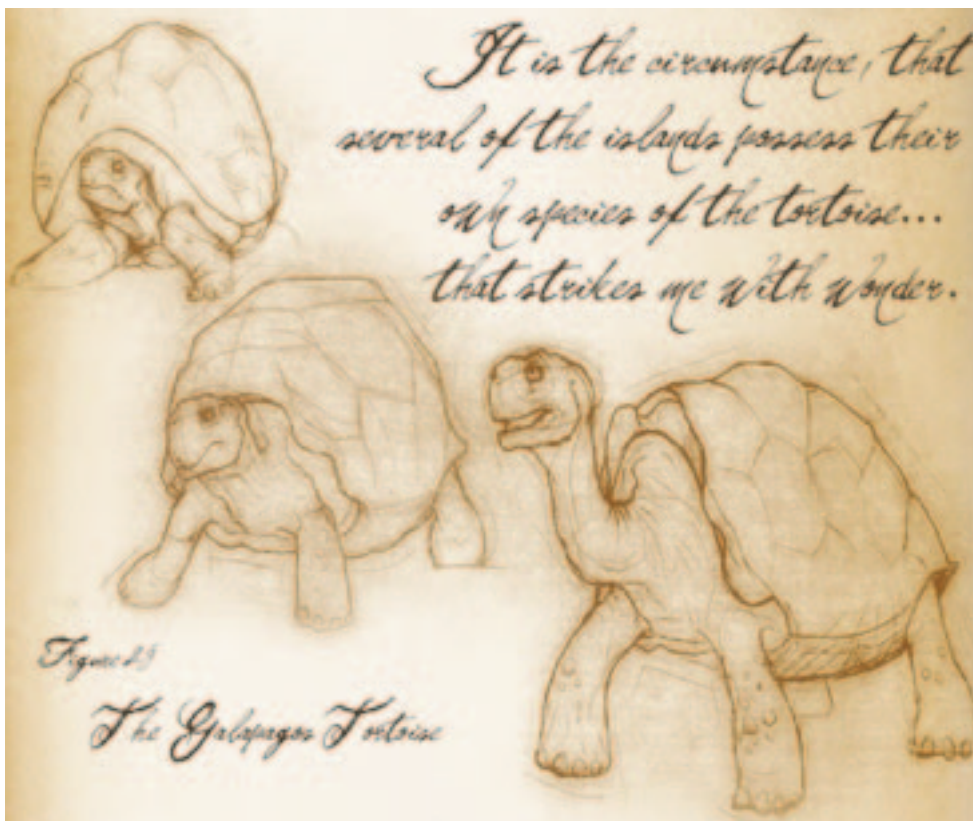 It is the circumstance, that
several of the islands possess their
own species of the tortoise...
that strikes me with wonder.
Figure 25
The Galapagos Tortoise